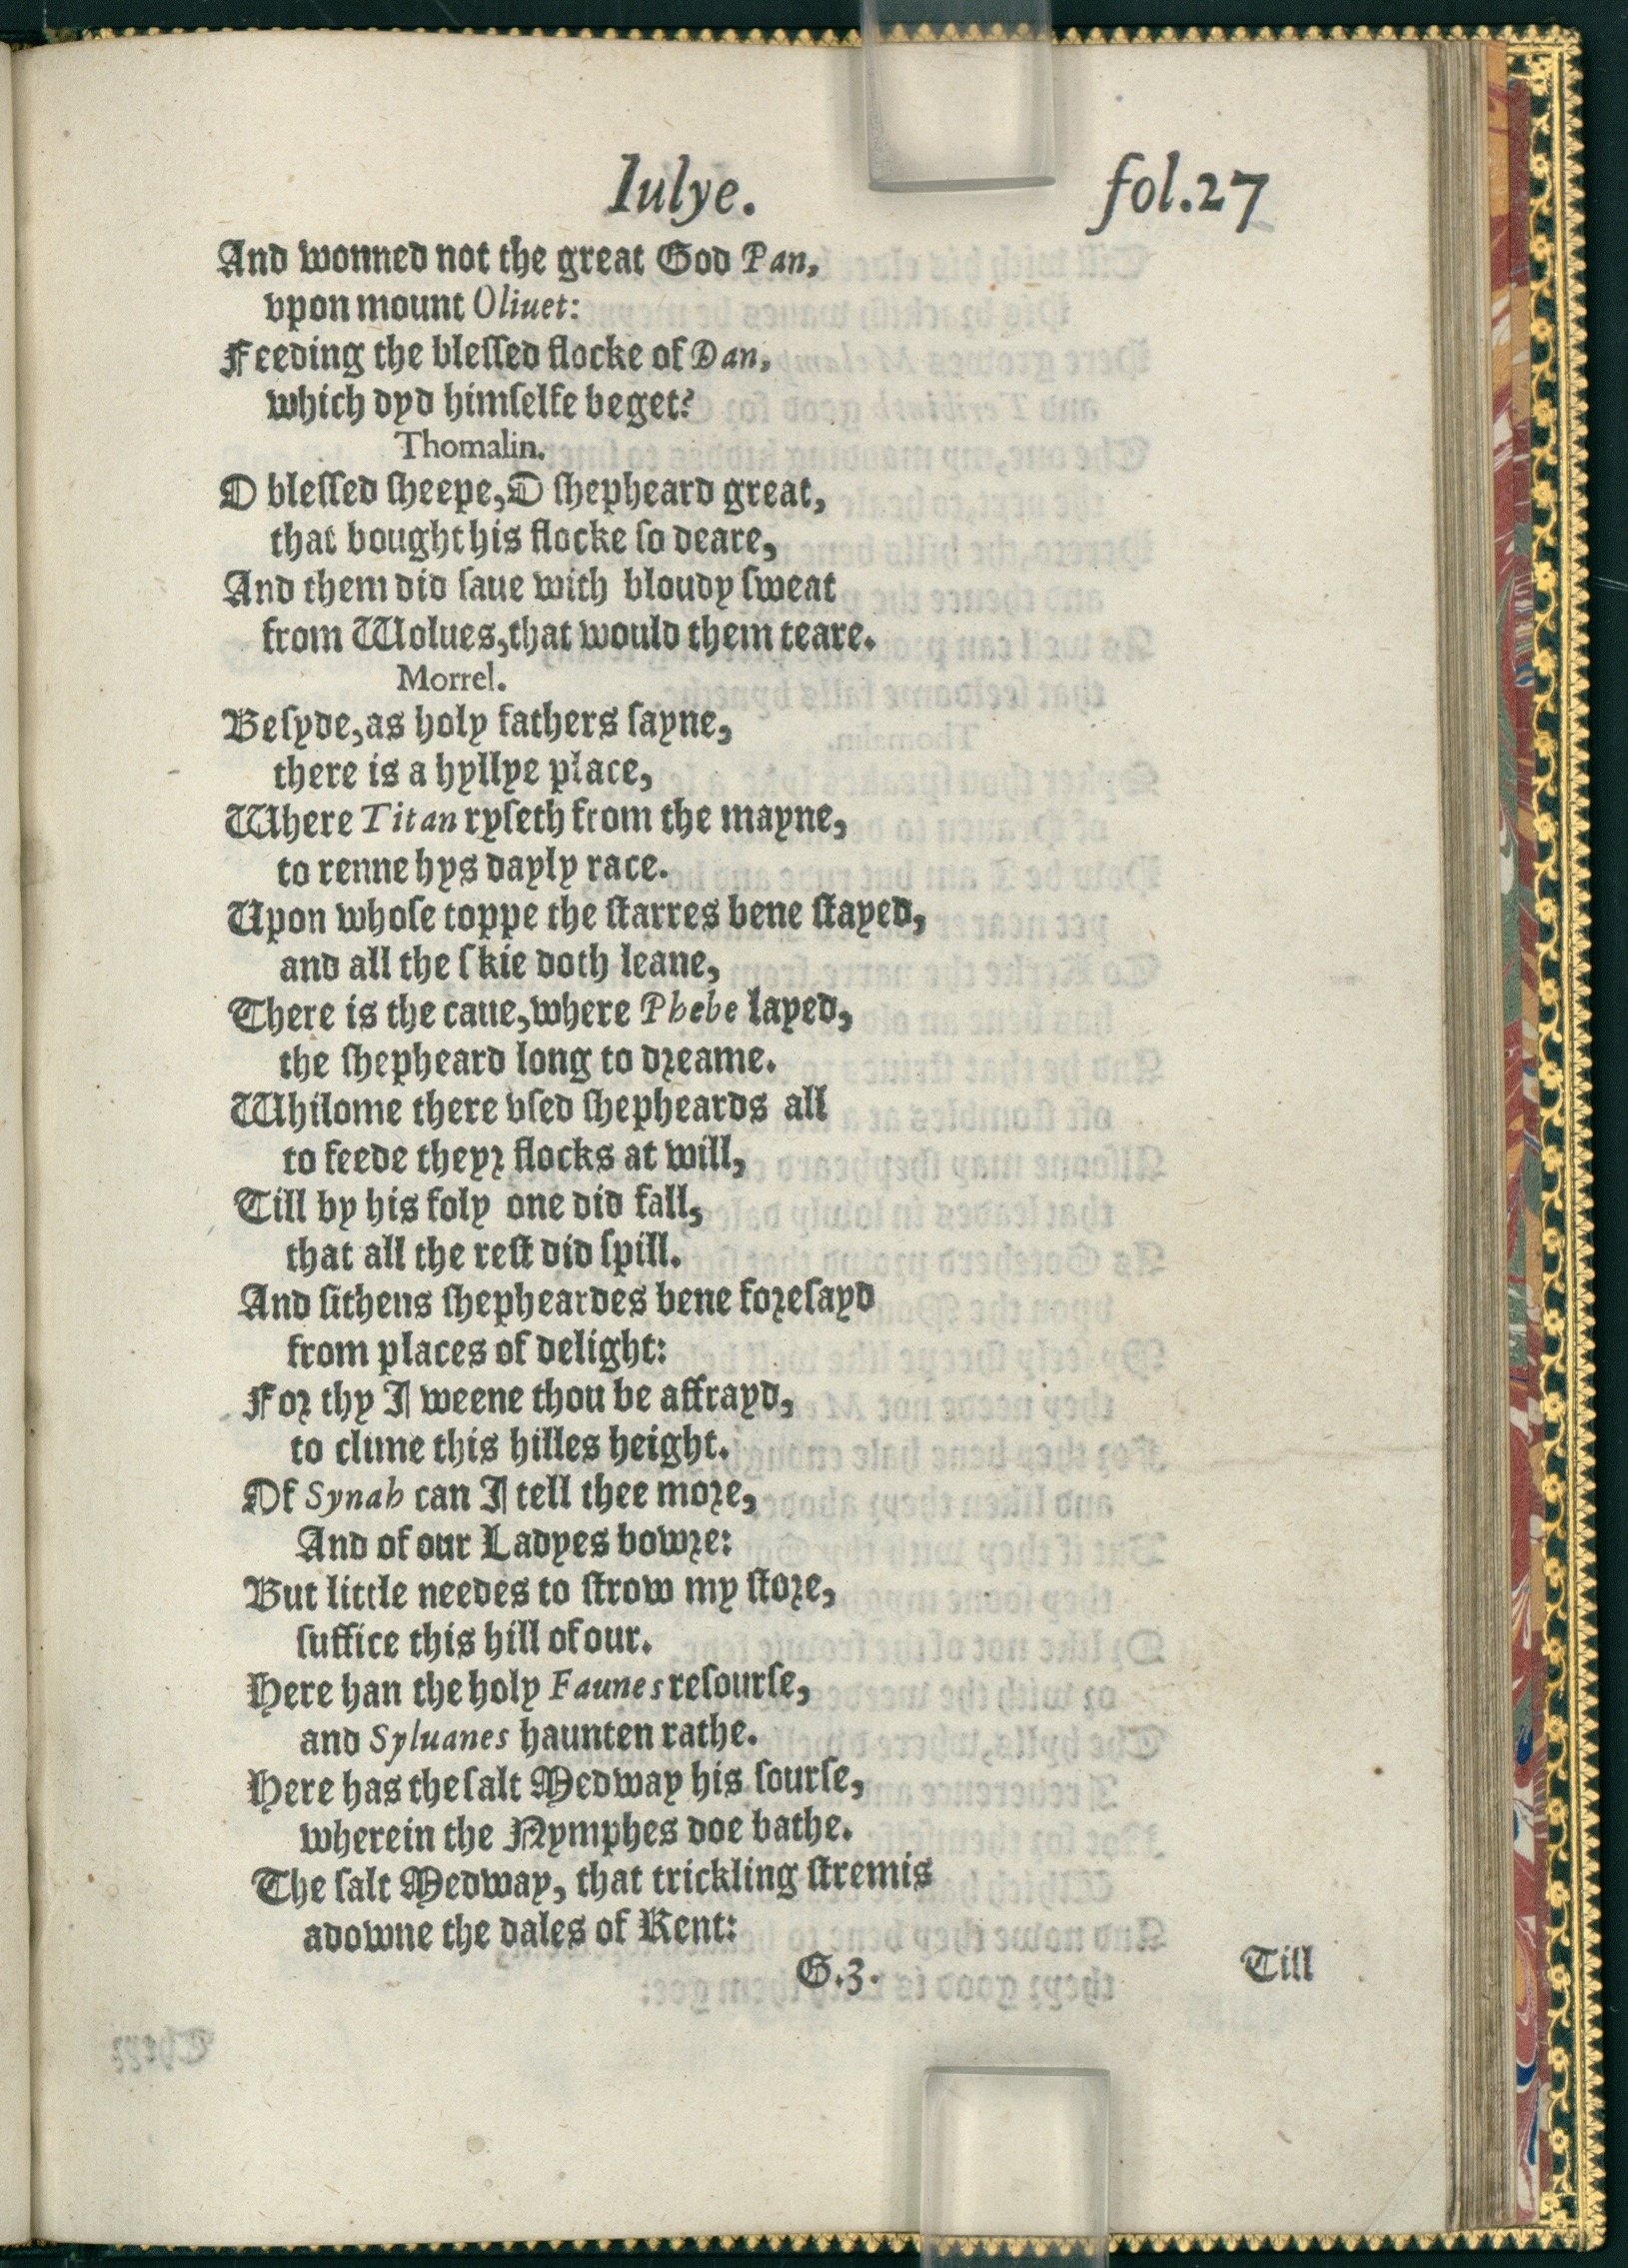 Iulye. fol.27
And wonned not the great God Pan,
vpon mount Oliuet:
Feeding the blessed flocke of Dan,
which dyd himselfe beget?
Thomalin.
O blessed sheepe, O shepheard great,
that bought his flocke so deare,
And them did saue with bloudy sweat
from Wolues, that would them teare.
Morrel.
Besyde, as holy fathers sayne,
there is a hyllye place,
Where Titan ryseth from the mayne,
to renne hys dayly race.
Upon whose toppe the starres bene stayed,
and all the skie doth leane,
There is the caue, where Phebe layed,
the shepheard long to dreame.
Whilome there vsed shepheards all
to feede theyr flocks at will,
Till by his foly one did fall,
that all the rest did spill.
And sithens shepheardes bene foresayd
from places of delight:
For thy I weene thou be affrayd,
to clime this hilles height.
Of Synah can I tell thee more,
And of our Ladyes bowre:
But little needes to strow my store,
suffice this hill of our.
Here han the holy Faunes resourse,
and Syluanes haunten rathe.
Here has the salt Medway his sourse,
wherein the Nymphes doe bathe.
The salt Medway, that trickling stremis
adowne the dales of Kent:
G.3. Till